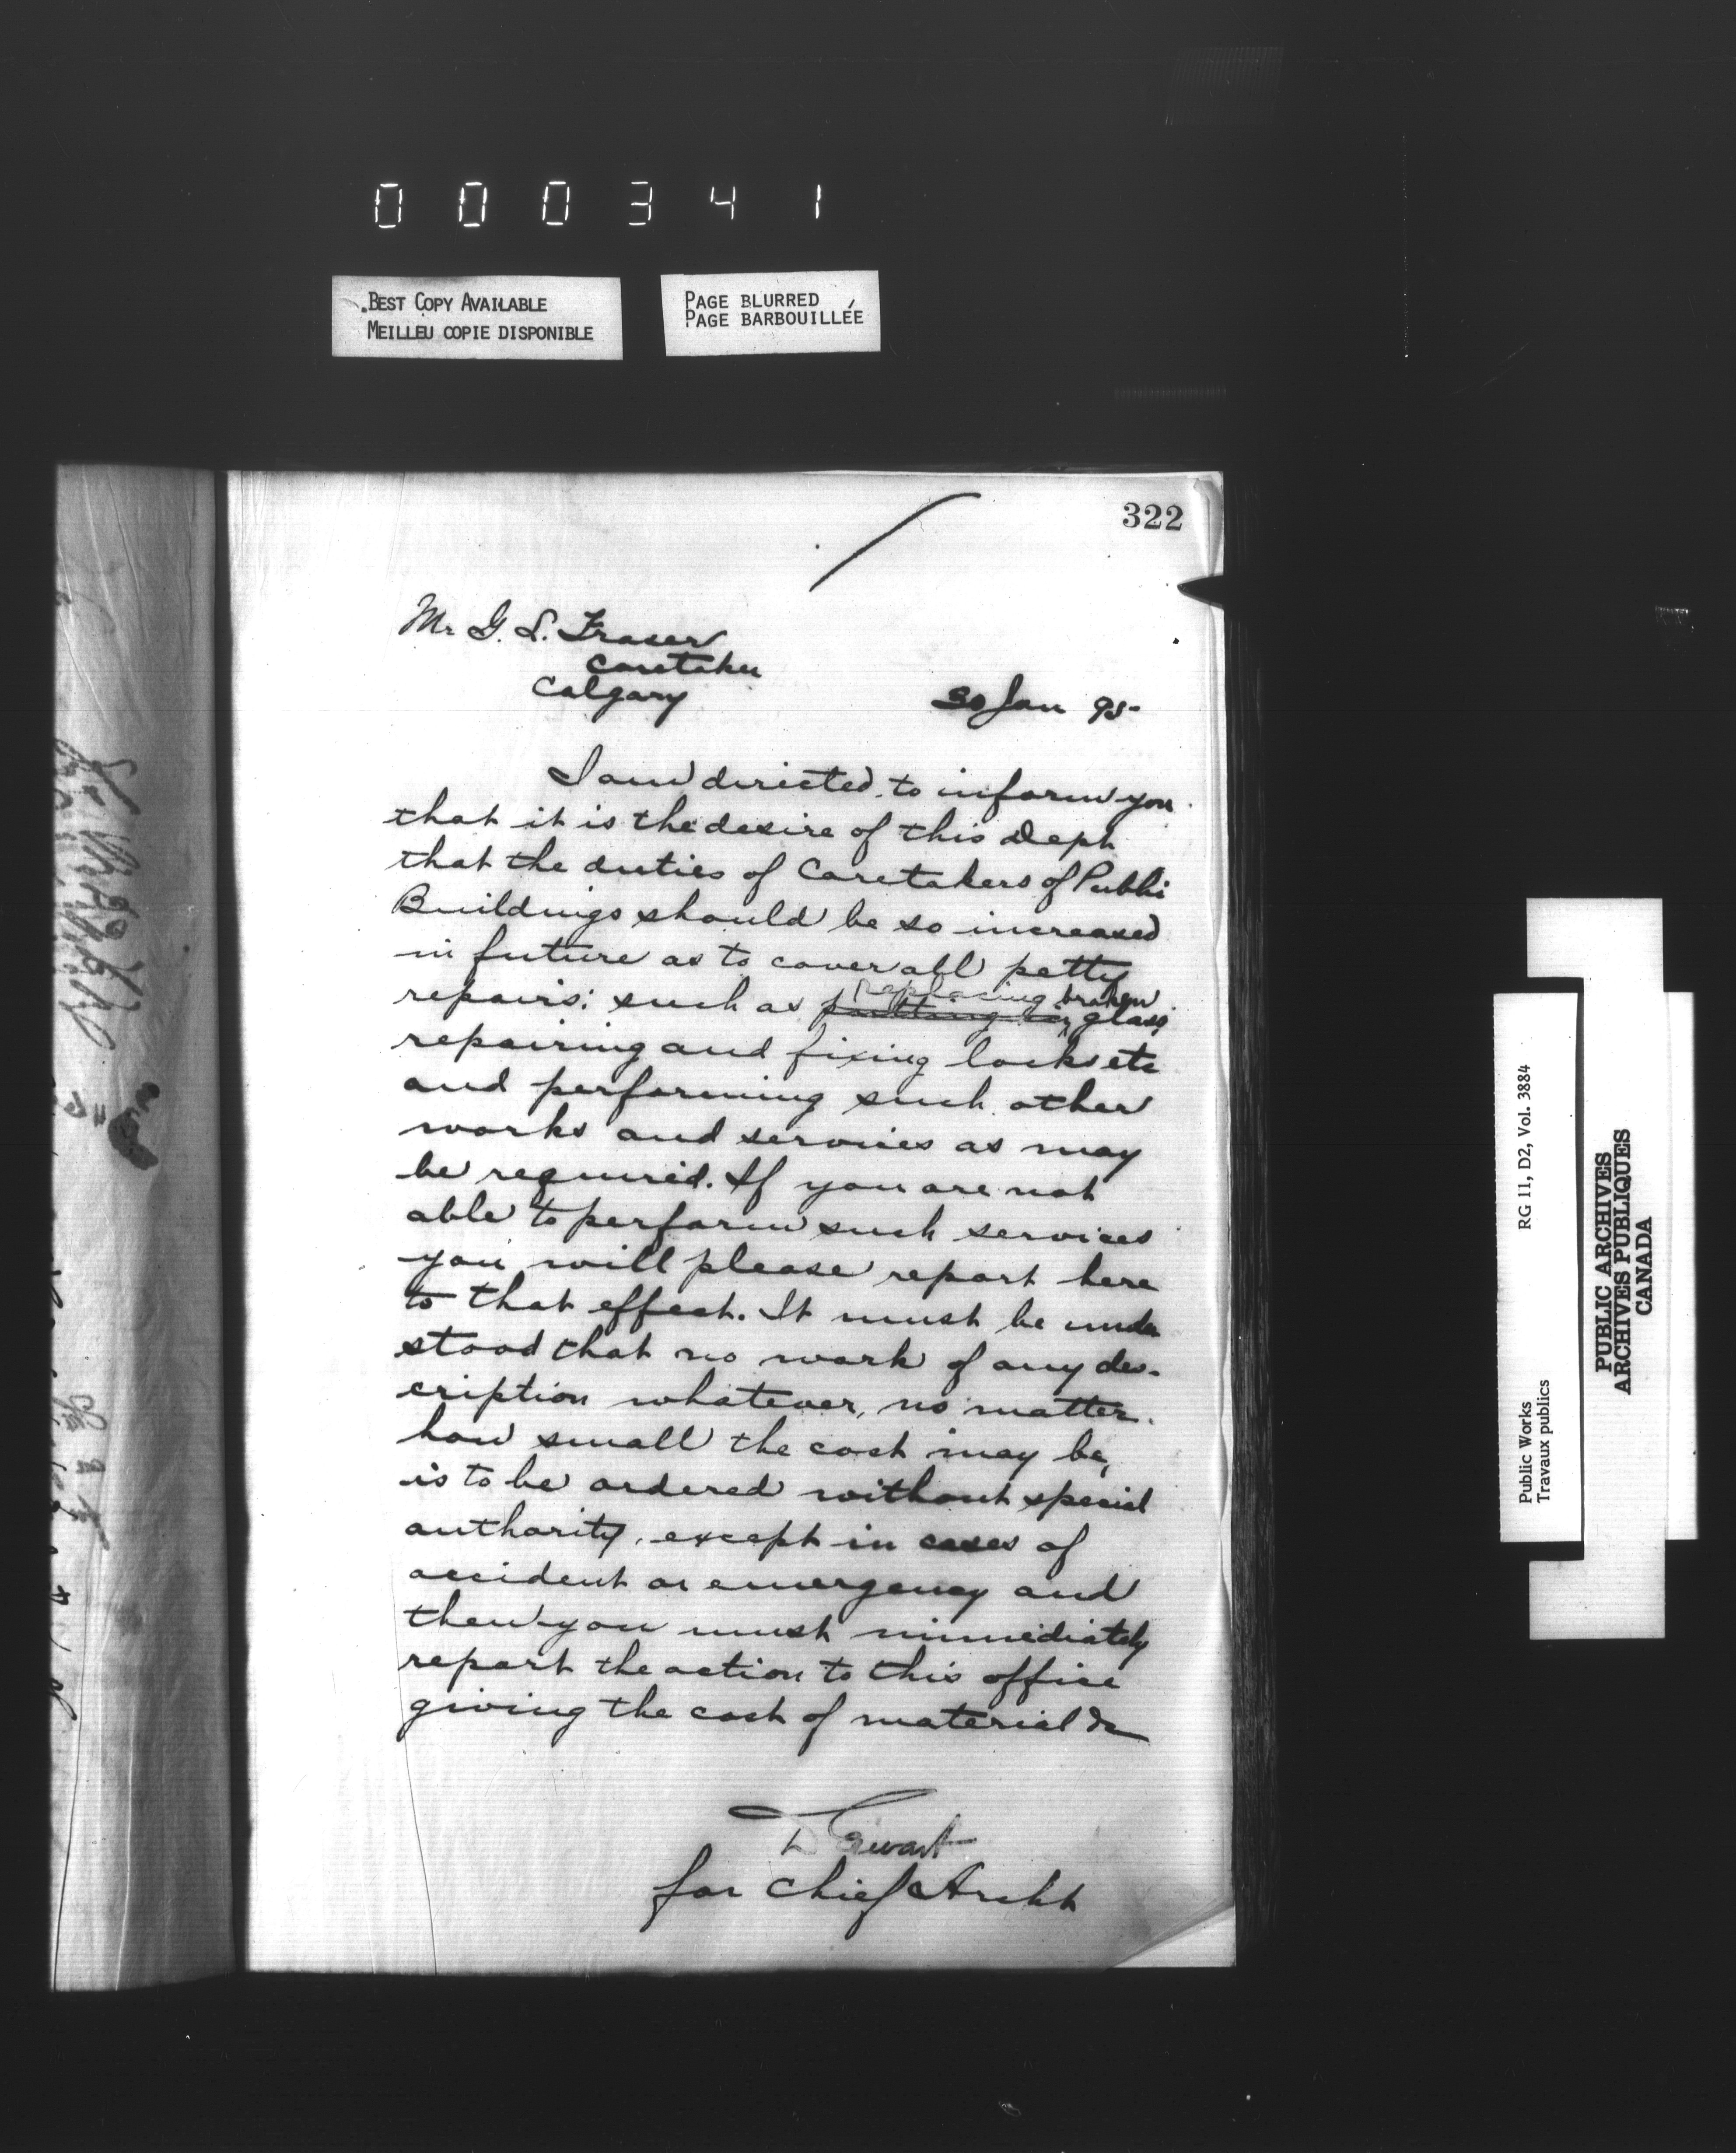 0 0 0 3 4 1
BEST COPY AVAILABLE
MEILLEU COPIE DISPONIBLE
PAGE BLURRED
PAGE BARBOUILLÉE
322
Mr G. L. Fraser
Caretaker
Calgary
30 Jan 95
I am directed to inform you
that it is the desire of this Dept
that the duties of Caretakers of Public
Buildings should be so increased
in future as to cover all petty
replacing broken
repairs; such as putting in glass,
repairing and fixing locks etc
and performing such other
works and services as may
be required. If you are not
able to perform such services
you will please report here
to that effect. It must be under
stood that no work of any des-
cription whatever, no matter
how small the cost may be,
is to be ordered without special
authority, except in cases of
accident or emergency and
then you must immediately
report the action to this office
giving the cost of material &c
D Ewart
for Chief Archt
Public Works
Travaux publics
RG 11, D2, Vol. 3884
PUBLIC ARCHIVES
ARCHIVES PUBLIQUES
CANADA